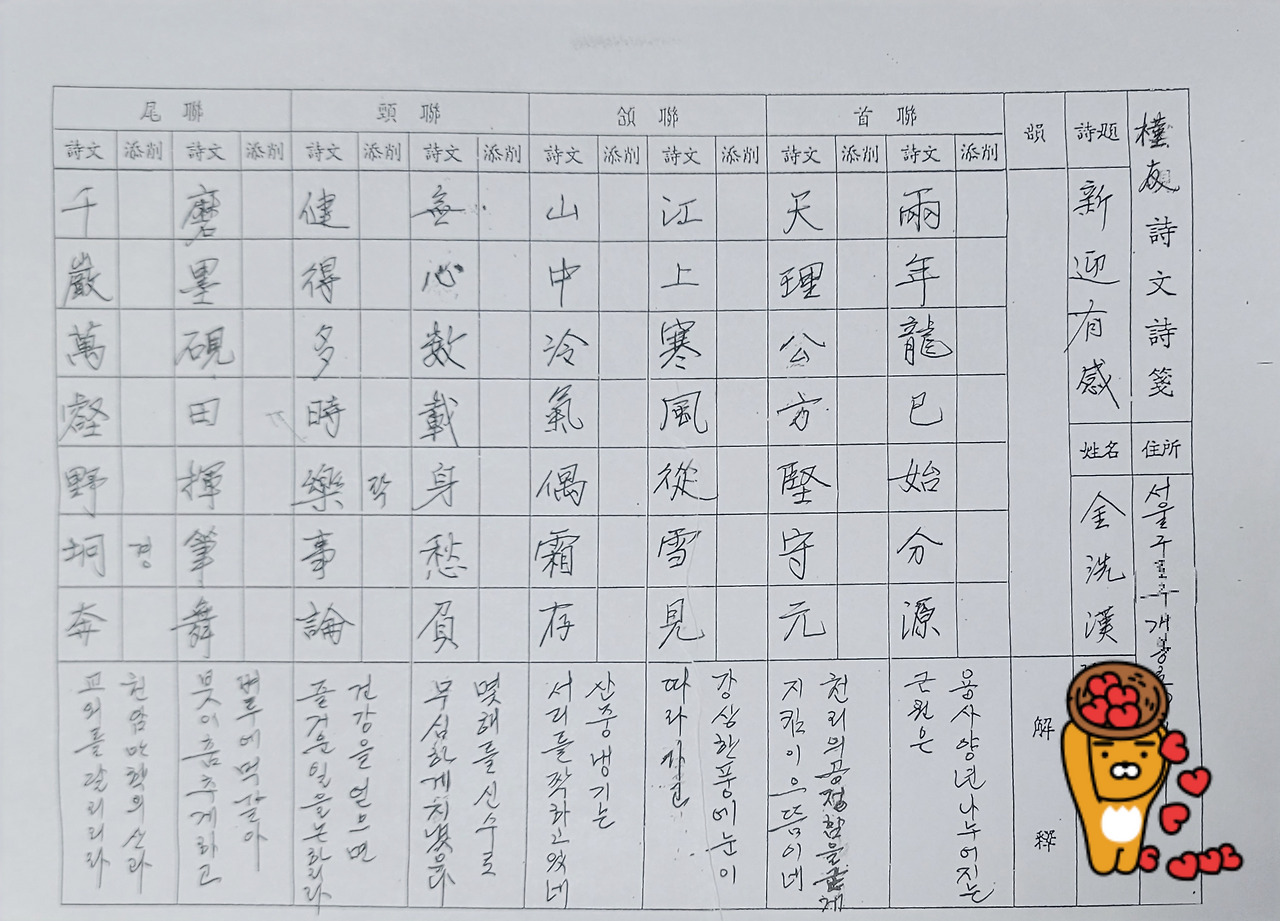 槿友詩文詩箋
住所
서울 구로구 개봉
詩題
新迎有感
姓名
金洗漢
韻
解釋
首聯
添削
詩文
兩年龍巳始分源
용사양년 나누어지는
근원은
添削
詩文
天理公方堅守元
천리의 공정함을 굳게
지킴이 으뜸이네
頷聯
添削
詩文
江上寒風從雪見
강상한풍에 눈이
따라
添削
詩文
山中冷氣偶霜存
산중냉기는
서리를 짝하고 있네
頸聯
添削
詩文
無心數載身愁負
몇해를 신수로
무심하게 치냈은다
添削
작
詩文
健得多時樂事論
건강을 얻으면
즐거운 일을 논하리라
尾聯
添削
詩文
磨墨硯田揮筆舞
벼루에 먹갈아
붓이 춤추게 하고
添削
경
詩文
千巖萬壑野坰奔
천암만학의 산과
교외를 달리리라